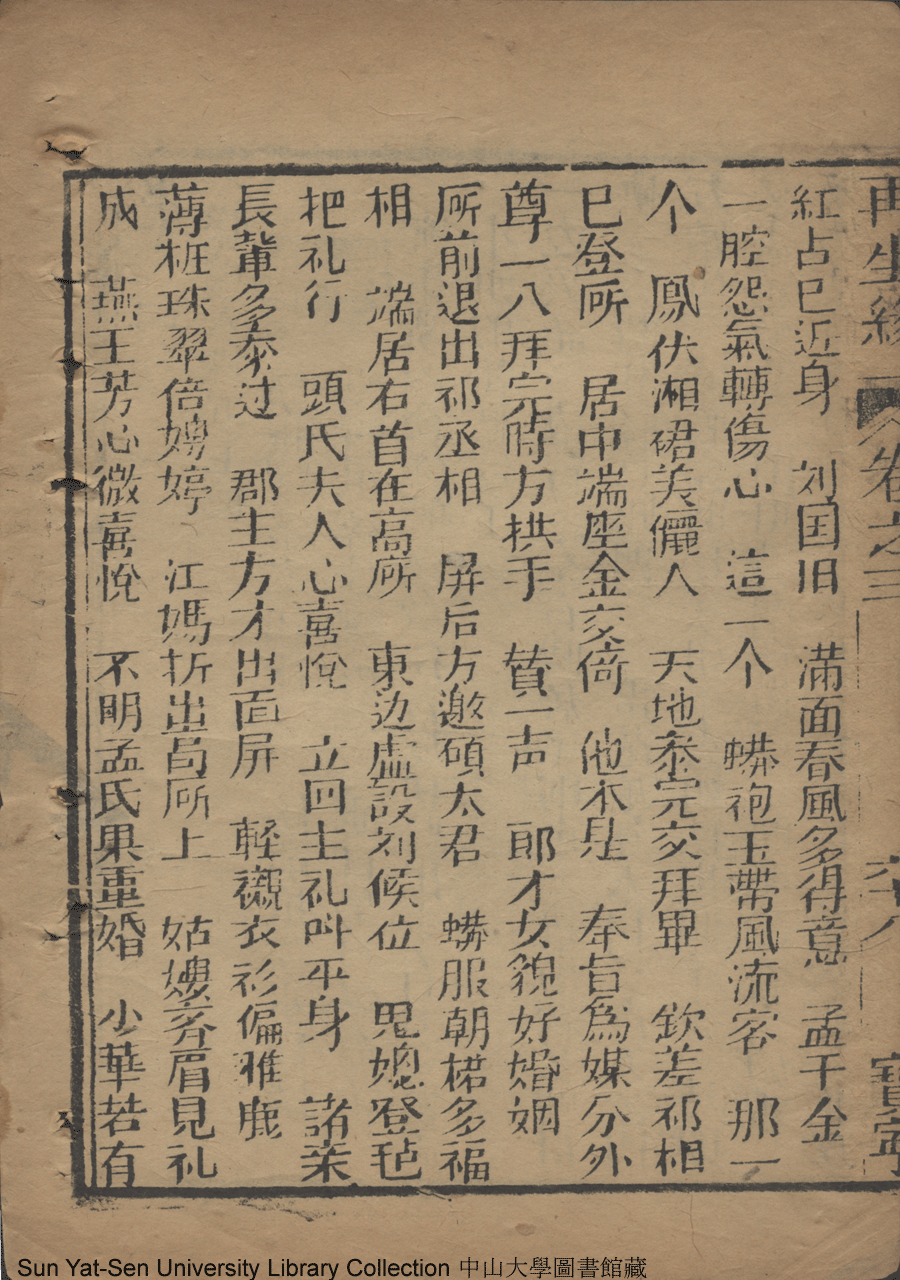 再生緣 卷之三 六十八 寳寧
紅占巳近身　刘国旧　滿面春風多得意　孟千金
一腔怨氣轉傷心　這一个　蟒袍玉帶風流客　那一
个　鳳伏湘裙美儷人　天地叅完交拜畢　欽差祁相
巳登所　居中端座金交倚　他本是　奉旨爲媒分外
尊　一八拜完時方拱手　賛一声　郎才女貌好婚姻
所前退出祁丞相　屏后方邀碩太君　蟒服朝裙多福
相　端居右首在高所　東边虛設刘候位　男媳登毡
把礼行　頭氏夫人心喜悅　立回主礼叫平身　諸亲
長輩多叅过　郡主方才出面屏　輕襯衣衫偏雅鹿
薄粧珠翠倍娉婷　江媽折出局所上　姑嫂齐眉見礼
成　燕玉芳心微喜悅　不明孟氏果重婚　少華若有
Sun Yat-Sen University Library Collection 中山大學圖書館藏